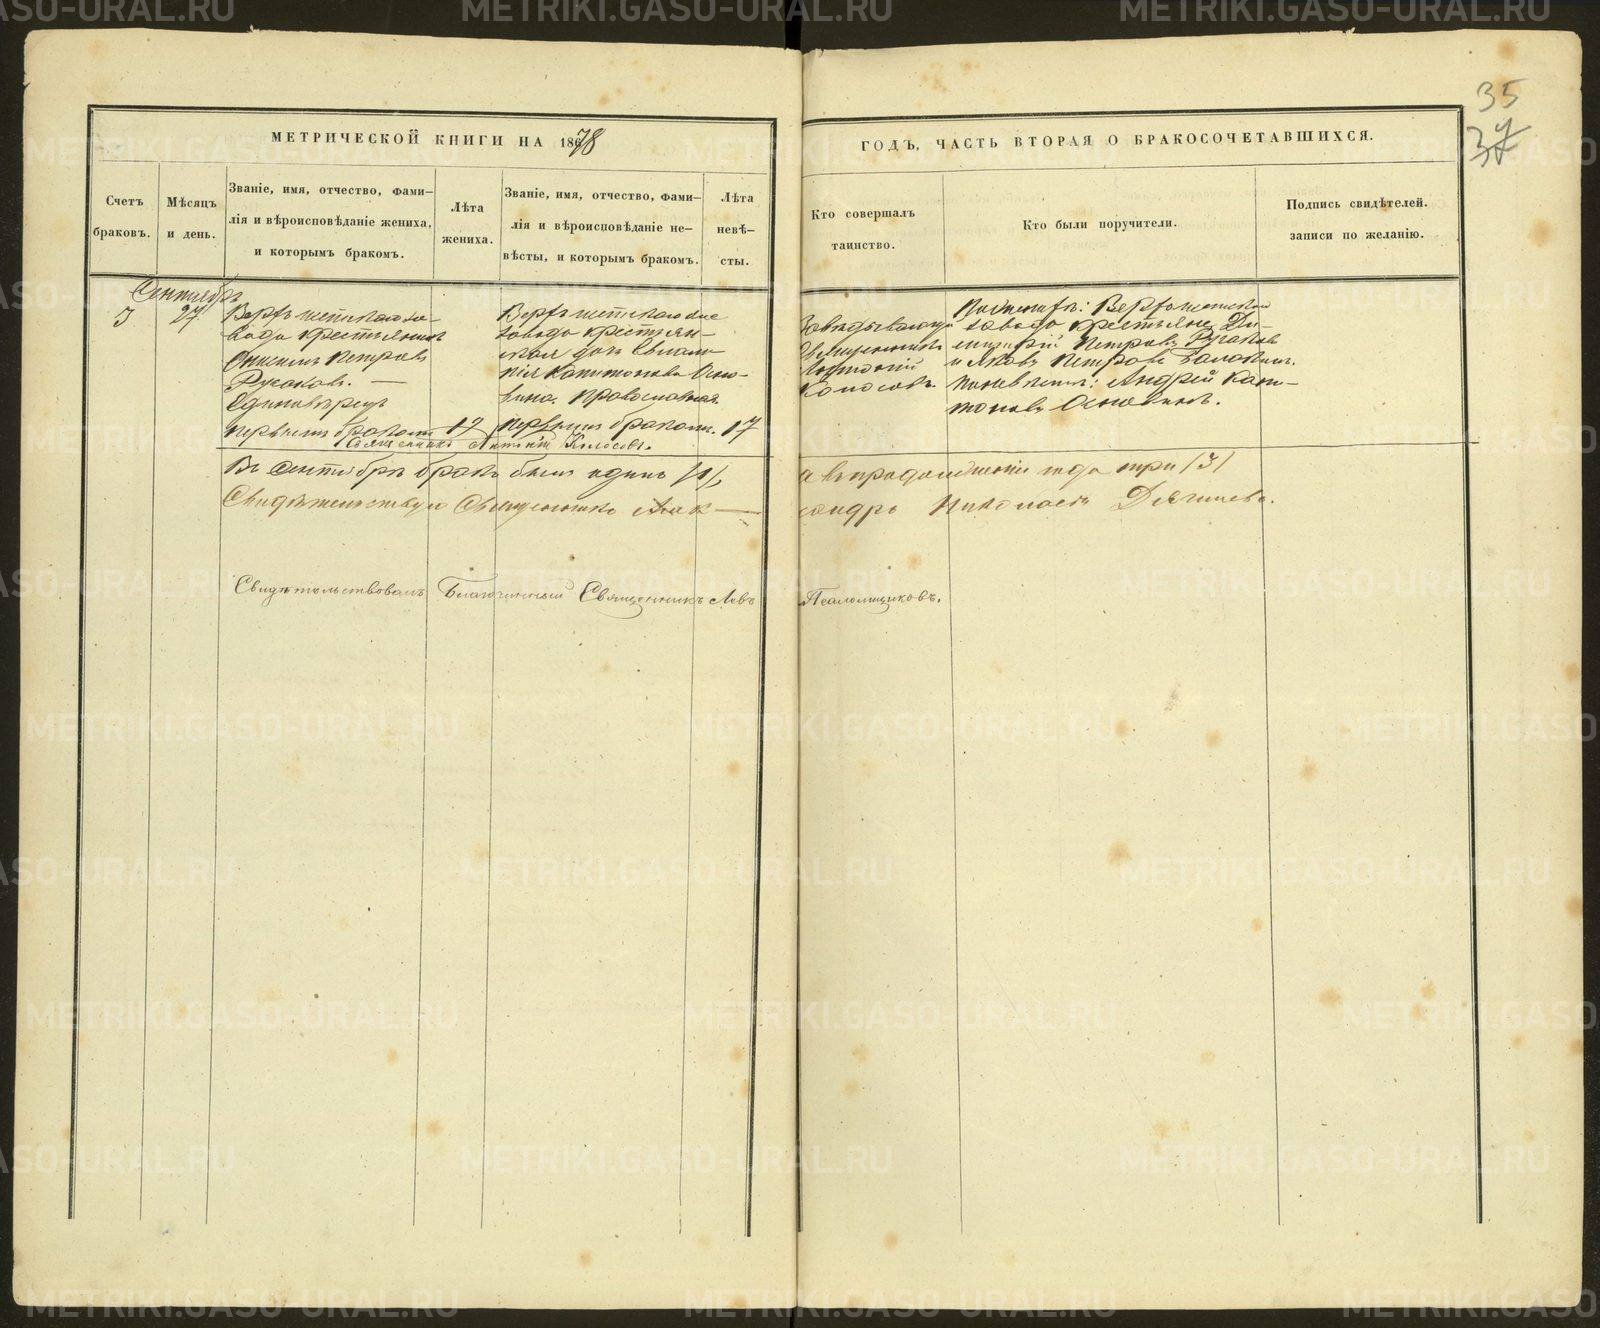 35
37
МЕТРИЧЕСКОЙ КНИГИ НА 1878
ГОДЪ, ЧАСТЬ ВТОРАЯ О БРАКОСОЧЕТАВШИХСЯ.
Счетъ браковъ.
Мѣсяцъ и день.
Званіе, имя, отчество, фами-
лія и вѣроисповѣданіе жениха,
и которымъ бракомъ.
Лѣта жениха.
Званіе, имя, отчество, фами-
лія и вѣроисповѣданіе не-
вѣсты, и которымъ бракомъ.
Лѣта невѣ-
сты.
Кто совершалъ
таинство.
Кто были поручители.
Подпись свидѣтелей.
записи по желанію.
Сентябрь
3
27
завода крестьянинъ
Петровъ
Русаковъ. —
Единовѣрецъ
первымъ бракомъ
19
завода крестьян-
ская дочь Евлам-
пія Капитонова Осно-
вина. Православная.
первымъ бракомъ.
17
Завѣдывающій
Священникъ
Антоній
Колосовъ.
По женихѣ:
завода крестьяне Ди-
митрій Петровъ Русаковъ
и Яковъ Петровъ
по невѣстѣ: Андрей Капи-
тоновъ Основинъ.
Священникъ Антоній Колосовъ.
Въ Сентябрѣ бракъ былъ одинъ /1/, а въ продолженіи года три /3/
Свидѣтельствую Священникъ Алек — сандръ Николаевъ Дягилевъ.
Свидѣтельствовалъ Благочинный Священникъ Левъ Псаломщиковъ.
METRIKI.GASO-URAL.RU